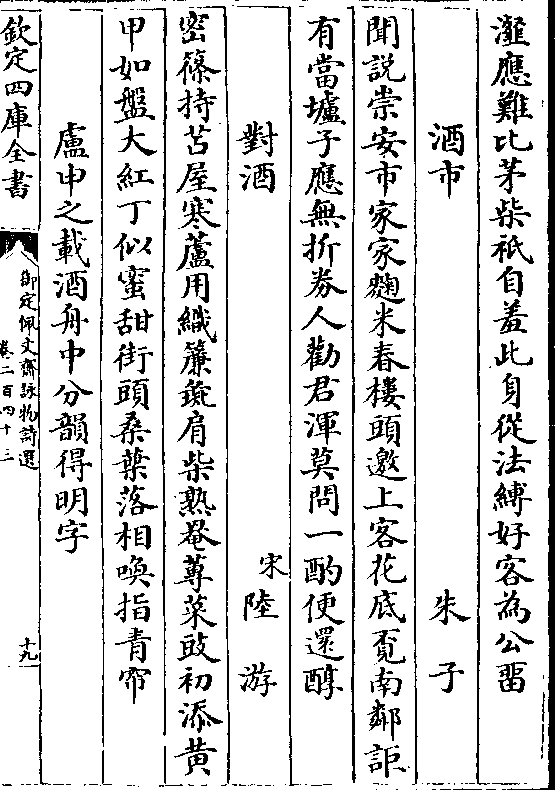 灘應難比茅柴祇自羞此身從法縛好客為公畱
酒市　朱子
聞説崇安市家家麴米春樓頭邀上客花底覓南鄰詎
有當壚子應無折券人勸君渾莫問一酌便還醇
對酒　宋陸游
密篠持苫屋寒蘆用織簾彘肩柴熟罨蓴菜豉初添黄
甲如盤大紅丁似蜜甜街頭桑葉落相喚指青帘
盧申之載酒舟中分韻得明字
欽定四庫全書
御定佩文齋詠物詩選
卷二百四十三
十九